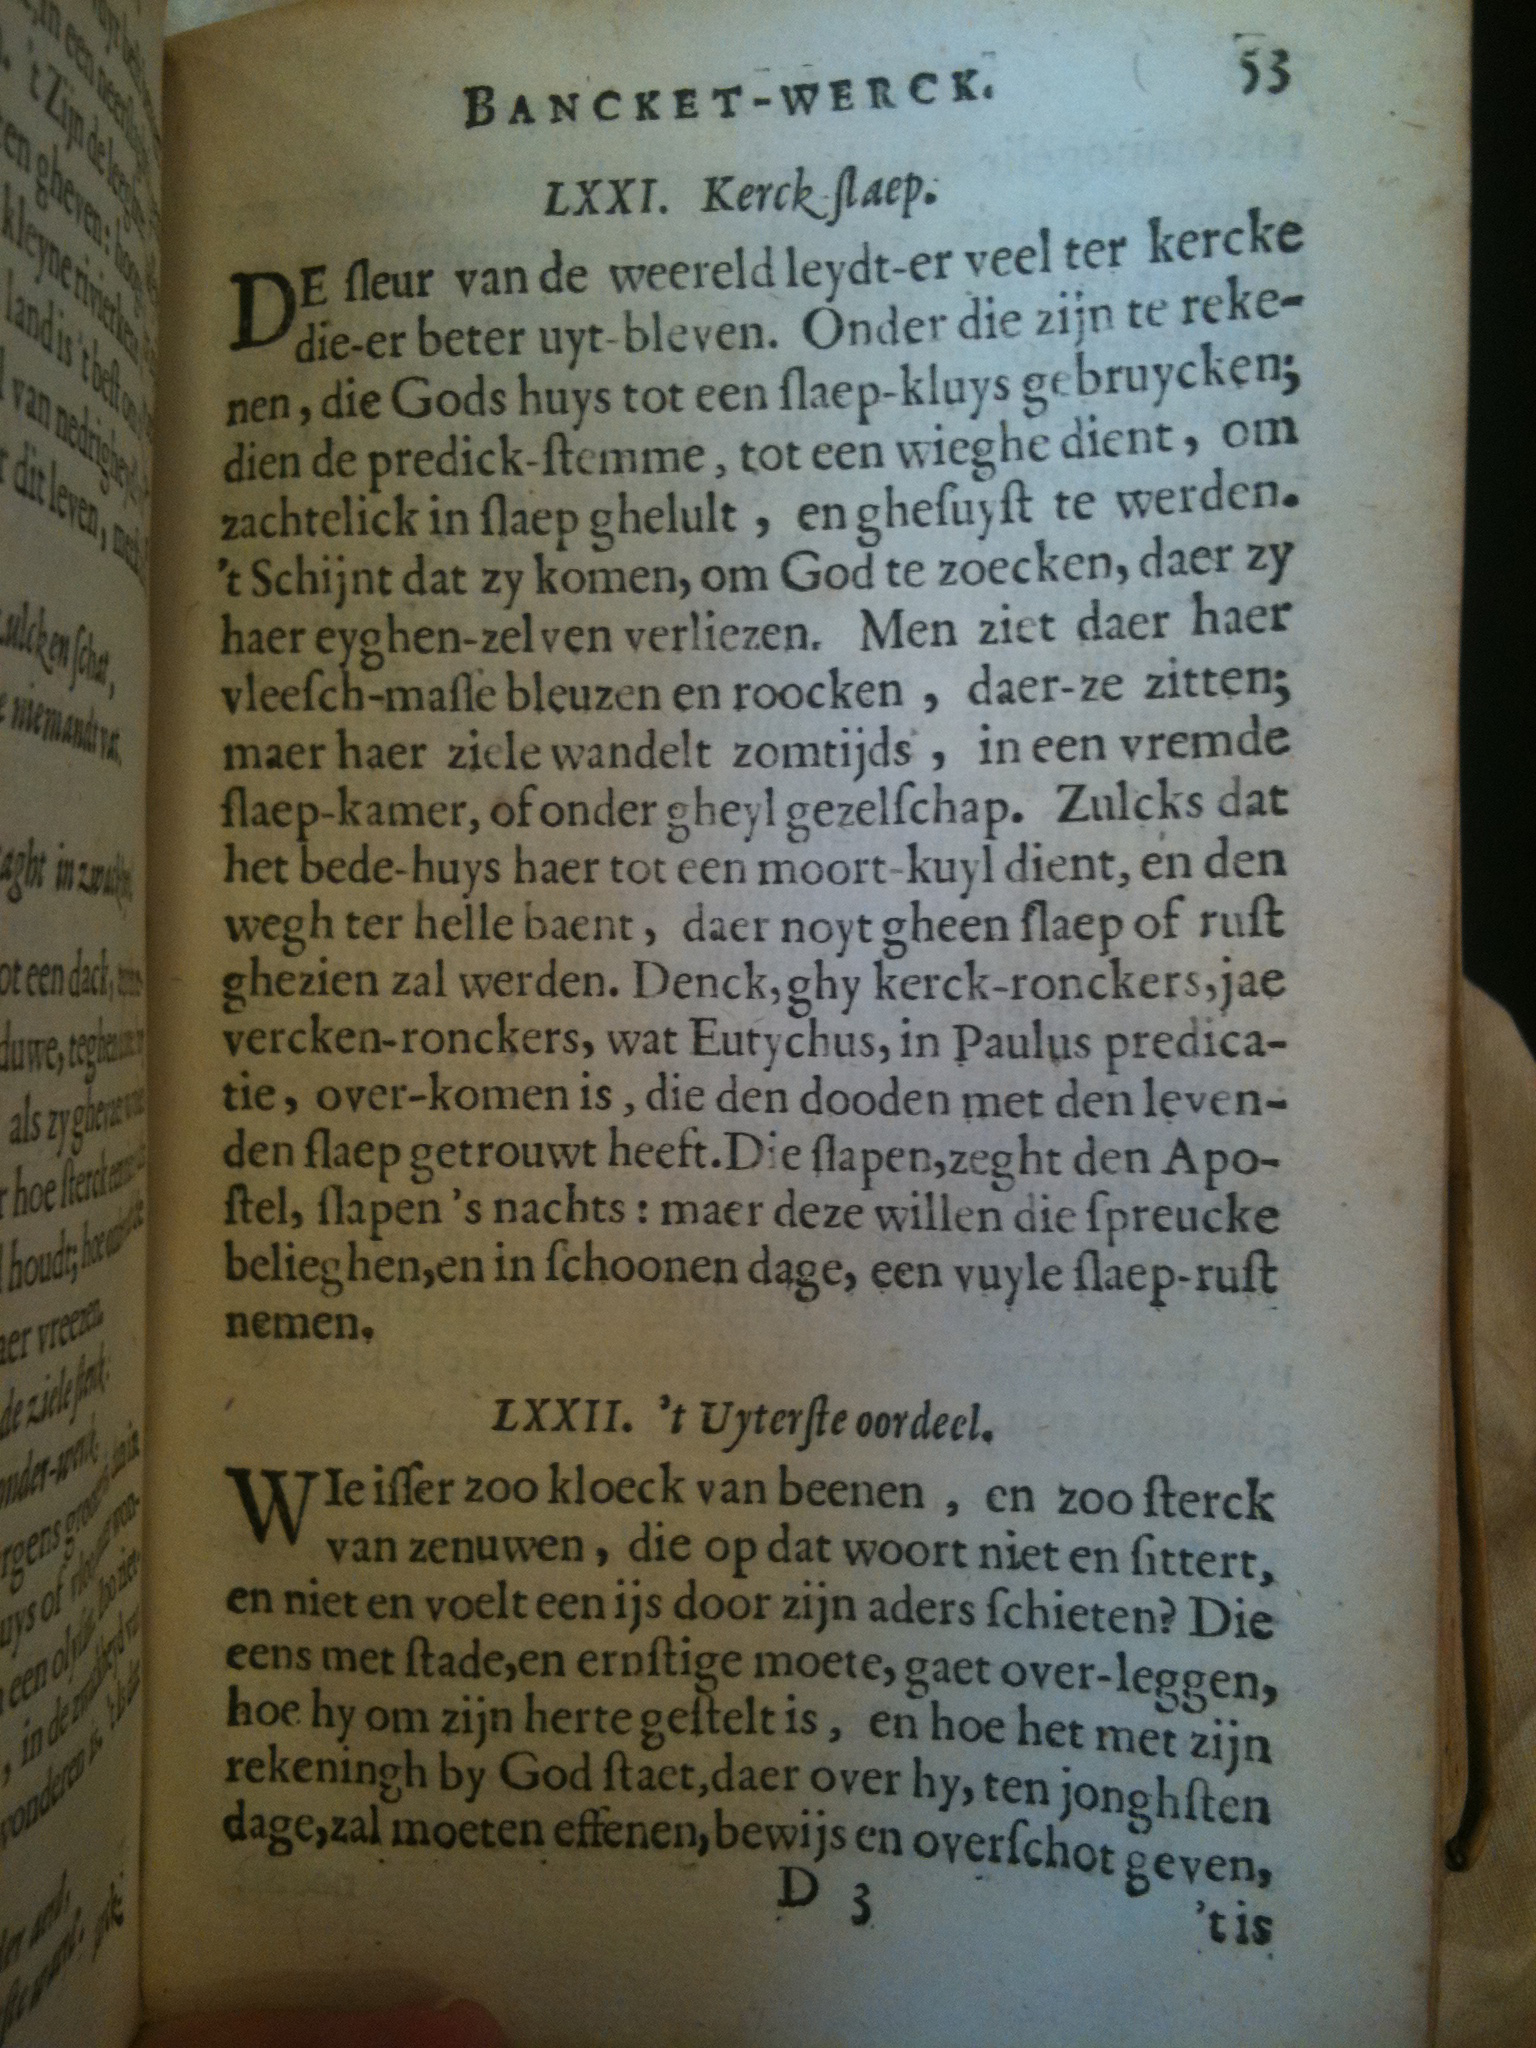 BANCKET-WERCK. 53
LXXI. Kerck-ſlaep.
DE ſleur van de weereld leydt-er veel ter kercke
die-er beter uyt-bleven. Onder die zijn te reke-
nen, die Gods huys tot een ſlaep-kluys gebruycken;
dien de predick-ſtemme, tot een wieghe dient, om
zachtelick in ſlaep ghelult, en gheſuyſt te werden.
't Schijnt dat zy komen, om God te zoecken, daer zy
haer eyghen-zelven verliezen. Men ziet daer haer
vleeſch-maſſe bleuzen en roocken, daer-ze zitten;
maer haer ziele wandelt zomtijds, in een vremde
ſlaep-kamer, of onder gheyl gezelſchap. Zulcks dat
het bede-huys haer tot een moort-kuyl dient, en den
wegh ter helle baent, daer noyt gheen ſlaep of ruſt
ghezien zal werden. Denck, ghy kerck-ronckers, jae
vercken-ronckers, wat Eutychus, in Paulus predica-
tie, over-komen is, die den dooden met den leven-
den ſlaep getrouwt heeft. Die ſlapen, zeght den Apo-
ſtel, ſlapen 's nachts: maer deze willen die ſpreucke
belieghen, en in ſchoonen dage, een vuyle ſlaep-ruſt
nemen.
LXXII. 't Uyterſte oordeel.
WIe iſſer zoo kloeck van beenen, en zoo ſterck
van zenuwen, die op dat woort niet en ſittert,
en niet en voelt een ijs door zijn aders ſchieten? Die
eens met ſtade, en ernſtige moete, gaet over-leggen,
hoe hy om zijn herte geſtelt is, en hoe het met zijn
rekeningh by God ſtaet, daer over hy, ten jonghſten
dage, zal moeten effenen, bewijs en overſchot geven,
D 3 't is